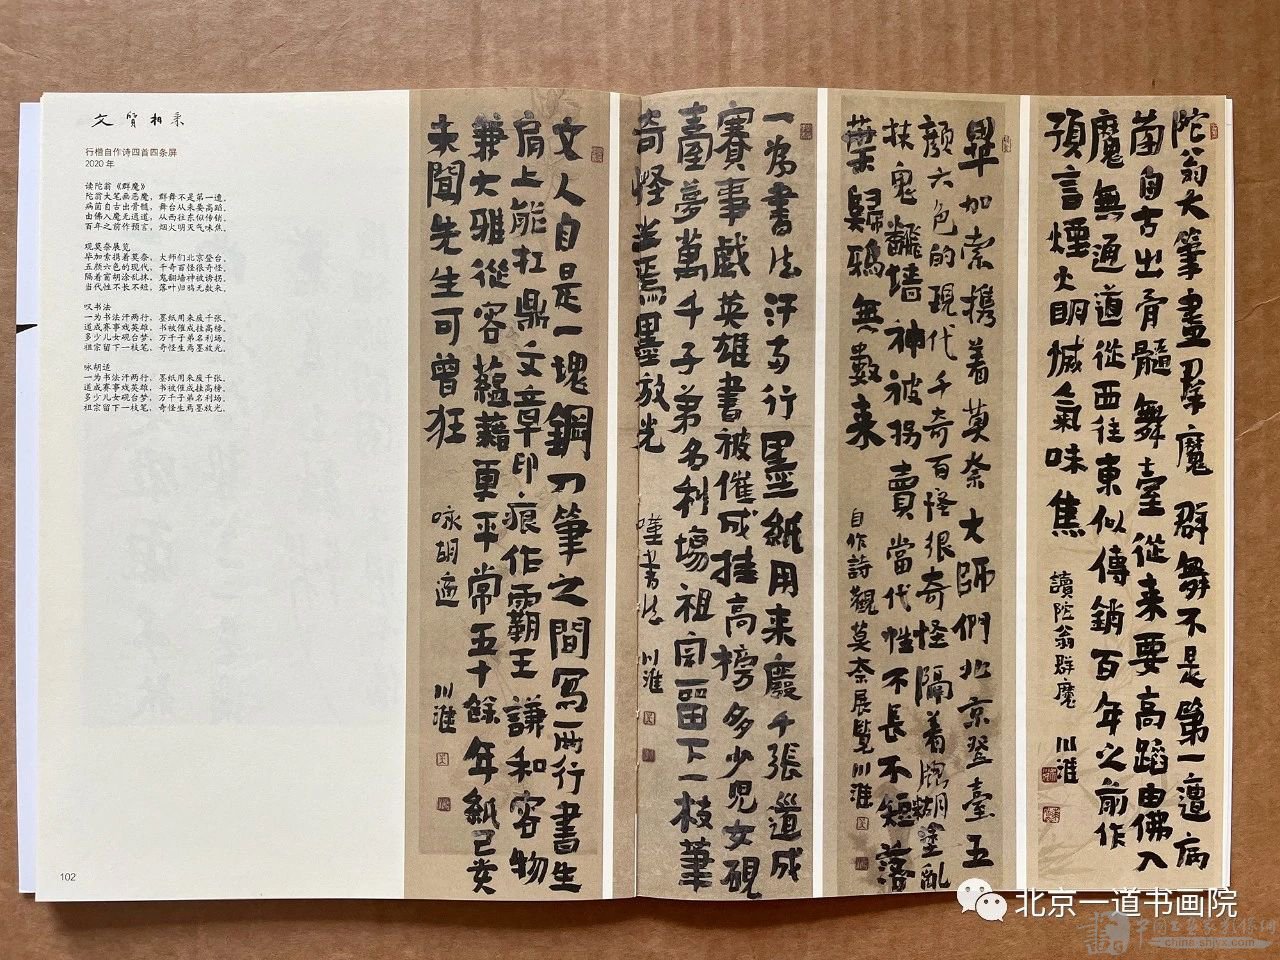 文質相采
行楷自作诗四首四条屏
2020 年
读陀翁《群魔》
陀翁大笔画恶魔，群舞不是第一遭。
病菌自古出骨髓，舞台从来要高蹈。
由佛入魔无通道，从西往东似传销。
百年之前作预言，烟火明灭气味焦。
观莫奈展览
毕加索携着莫奈，大师们北京登台。
五颜六色的现代，千奇百怪很奇怪。
隔着窗胡涂乱抹，鬼翻墙神被诱拐。
当代性不长不短，落叶归鸦无数来。
叹书法
一为书法汗两行，墨纸用来废千张。
道成赛事戏英雄，书被催成挂高榜。
多少儿女砚台梦，万千子弟名利场。
祖宗留下一枝笔，奇怪生焉墨放光。
咏胡适
一为书法汗两行，墨纸用来废千张。
道成赛事戏英雄，书被催成挂高榜。
多少儿女砚台梦，万千子弟名利场。
祖宗留下一枝笔，奇怪生焉墨放光。
102
陀翁大筆畫群魔群舞不是第一遭病
菌自古出骨髓舞臺從来要高蹈由佛入
魔無通道從西往東似傳銷百年之前作
預言煙火明滅氣味焦
讀陀翁群魔
川淮
畢加索携着莫奈大師們北京登臺五
颜六色的現代千奇百怪很奇怪隔着窗糊塗亂
抹鬼翻墙神被拐賣當代性不長不短落
葉歸鴉無數来
自作詩觀莫奈展覧川淮
一為書法汗两行墨紙用来廢千張道成
賽事戲英雄書被催成挂高榜多少児女硯
臺夢萬千子弟名利場祖宗留下一枝筆
奇怪生焉墨放光
嘆書法
川淮
文人自是一塊鋼刀筆之間寫兩行書生
肩上能扛鼎文章印痕作霸王謙和容物
兼大雅從容蘊藉更平常五十餘年紙已黄
未聞先生可曾狂
咏胡適
川淮
北京一道书画院
china-shjyx.com